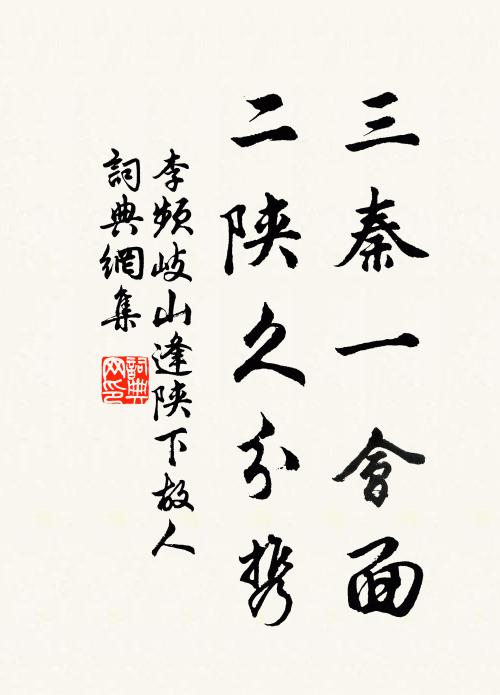 三秦一會面
二陝久分携
李頻岐山逢陝下故人
詞典網集
詞典
网印